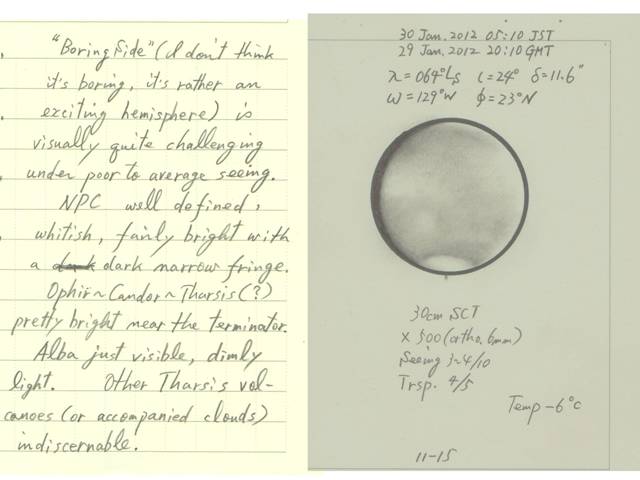 "Boring Side" (I don't think
it's boring, it's rather an
exciting hemisphere) is
visually quite challenging
under poor to average seeing.
NPC well defined,
whitish, fairly bright with
a dark narrow fringe.
Ophir~Candor~Tharsis(?)
pretty bright near the terminator.
Alba just visible, dimly
light. Other Tharsis vol-
canoes (or accompanied clouds)
indiscernable.
30 Jan. 2012 05:10 JST
29 Jan. 2012 20:10 GMT
λ=064°Ls ι=24° δ=11.6"
ω=129°W φ=23°N
30cm SCT
×500 (ortho. 6mm)
Seeing 3~4/10
Trsp. 4/5
Temp -6°C
11-15